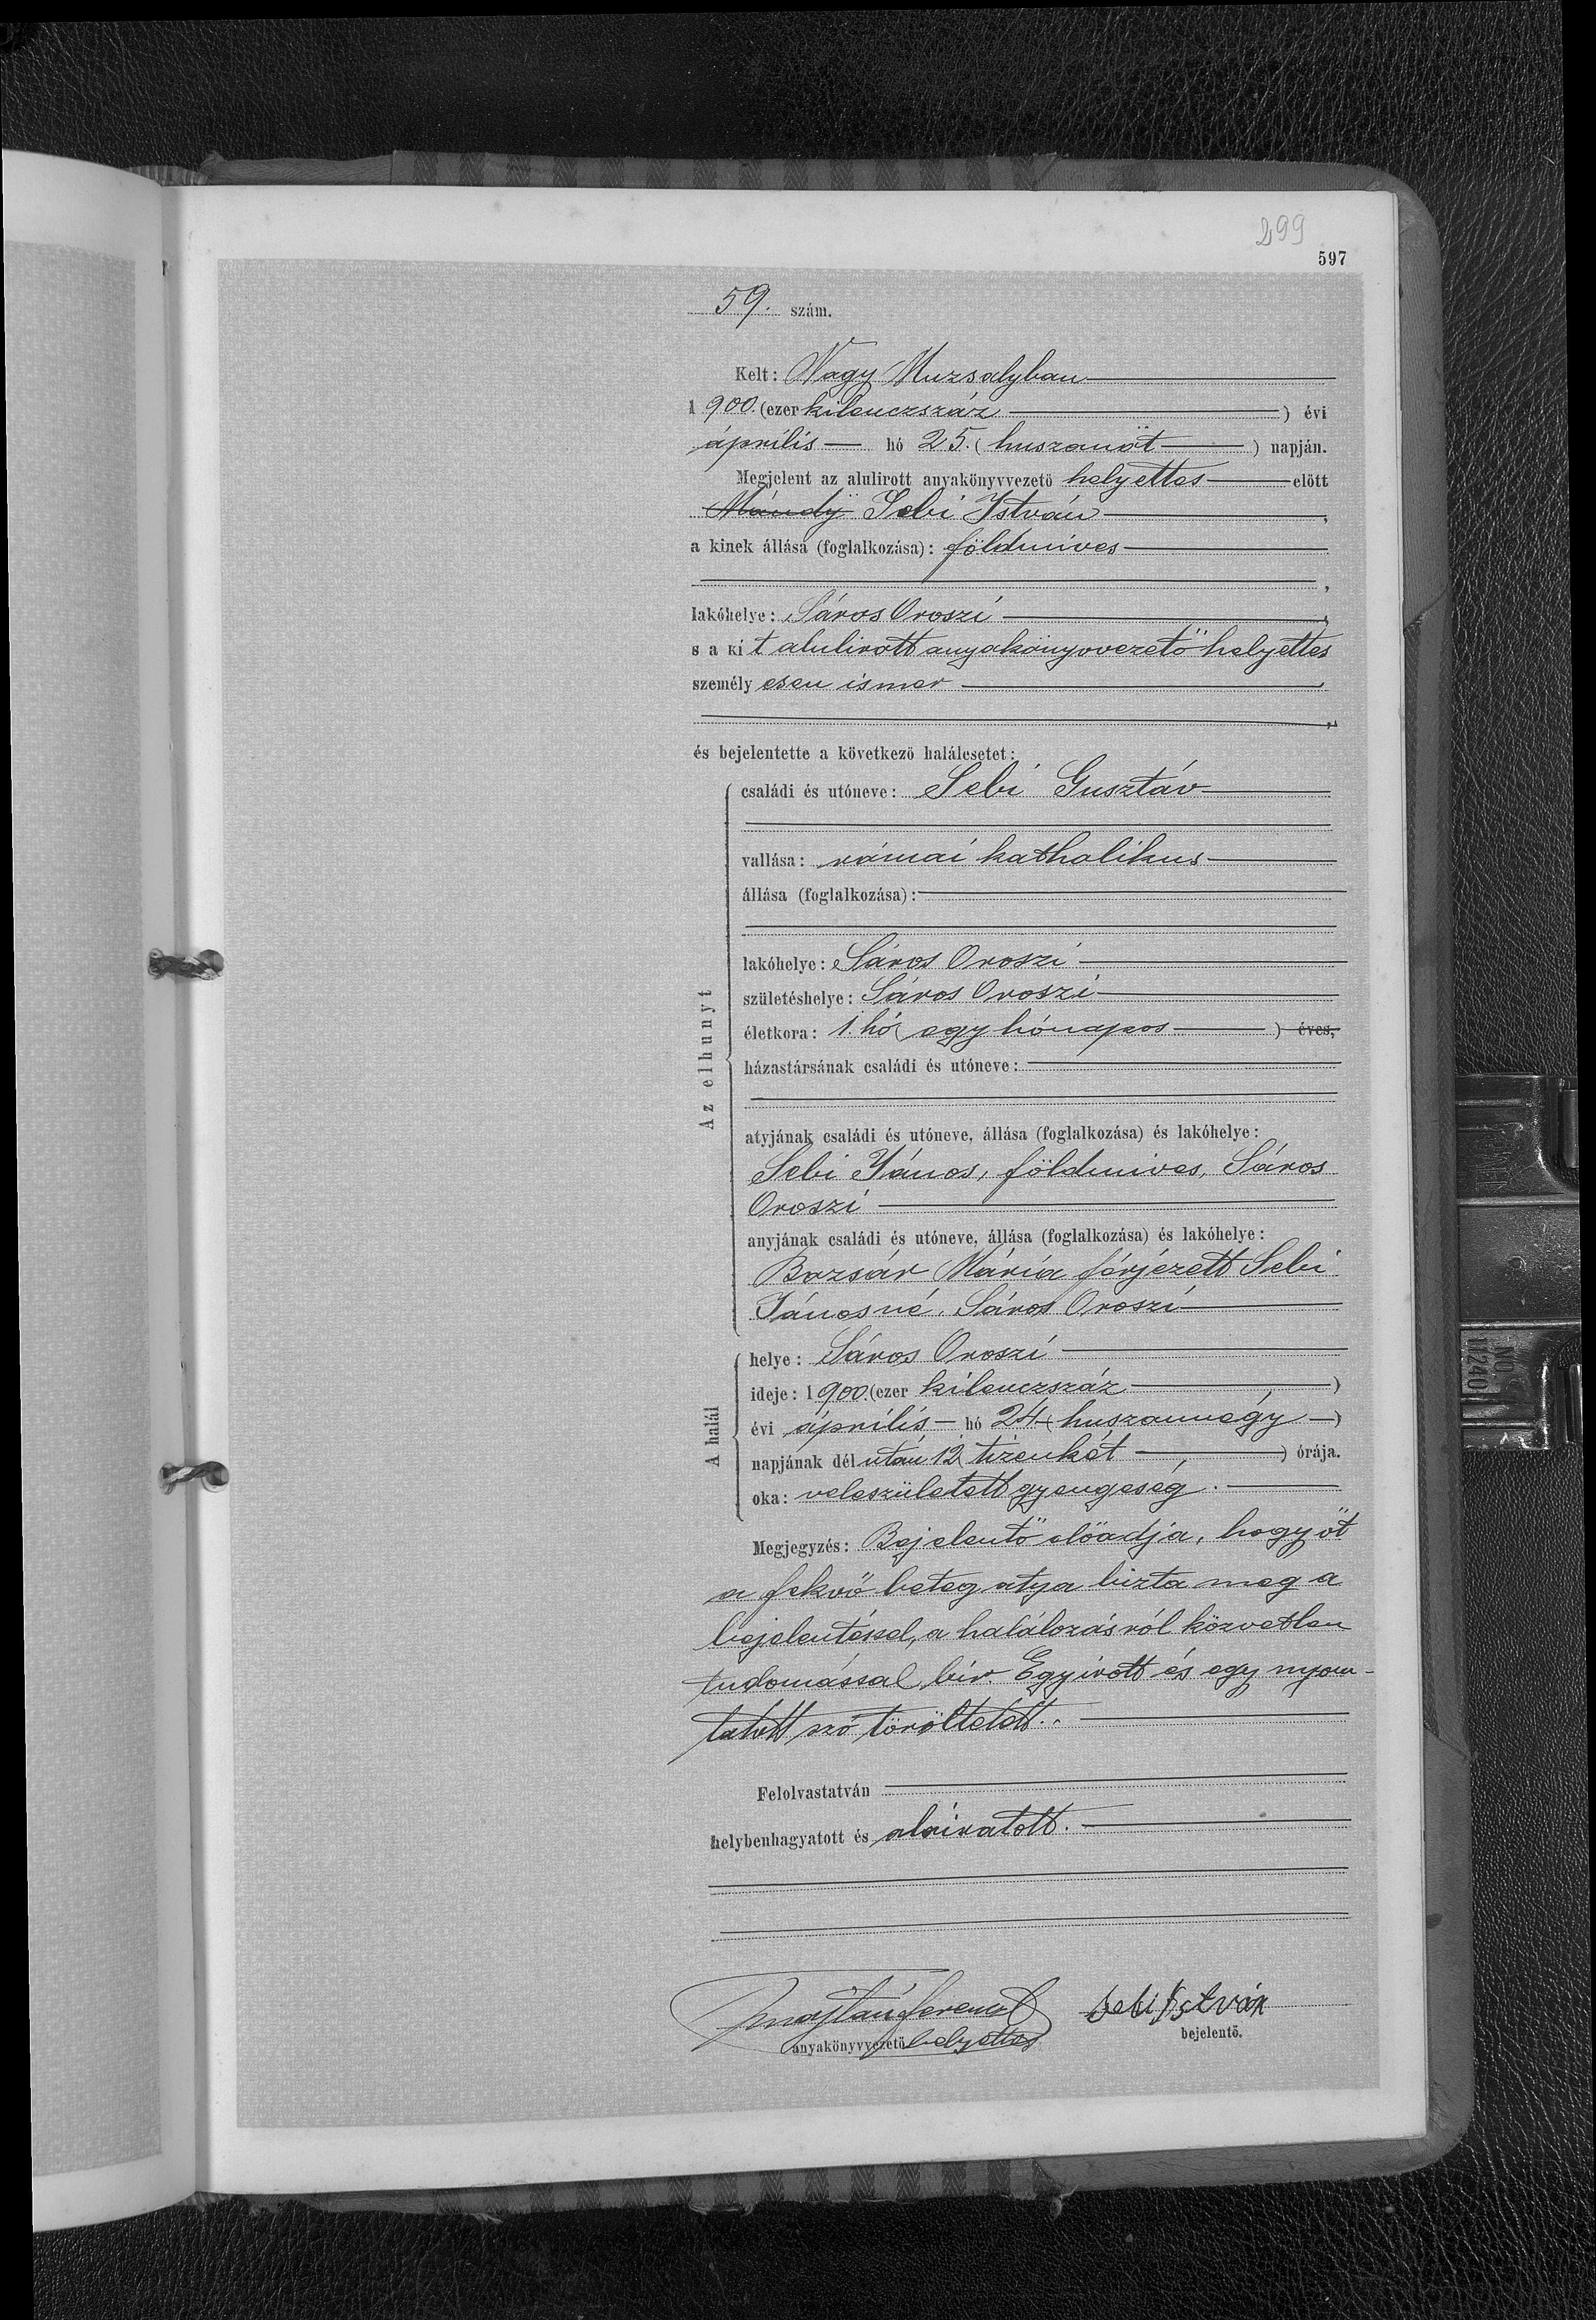 299
597
59. szám.
Kelt: Nagy Muzsalyban
1 900. (ezer kilenczszáz) évi
április hó 25. (huszanöt) napján.
Megjelent az alulirott anyakönyvvezető helyettes előtt
Mándy Sebi István,
a kinek állása (foglalkozása): földmives
,
lakóhelye: Sáros Oroszi,
s a kit alulirott anyakönyvvezető helyettes
személyesen ismer,
,
és bejelentette a következő halálesetet:
Az elhunyt
családi és utóneve: Sebi Gusztáv
vallása: római katholikus
állása (foglalkozása):
lakóhelye: Sáros Oroszi
születéshelye: Sáros Oroszi
életkora: 1. hó (egy hónapos) éves,
házastársának családi és utóneve:
atyjának családi és utóneve, állása (foglalkozása) és lakóhelye:
Sebi János, földmives, Sáros
Oroszi
anyjának családi és utóneve, állása (foglalkozása) és lakóhelye:
Bozsár Mária férjezett Sebi
Jánosné, Sáros Oroszi
A halál
helye: Sáros Oroszi
ideje: 1 900. (ezer kilenczszáz)
évi április hó 24 (huszonnégy)
napjának délután 12 (tizenkét) órája.
oka: veleszületett gyengeség.
Megjegyzés: Bejelentő előadja, hogy őt
a fekvő beteg atya bizta meg a
bejelentéssel, a halálozásról közvetlen
tudomással bir. Egy irott és egy nyom-
tatott szó töröltetett.
Felolvastatván
helybenhagyatott és aláiratott.
Majtán Ferencz Sebi István
anyakönyvvezető helyettes bejelentő.
NO.
11240